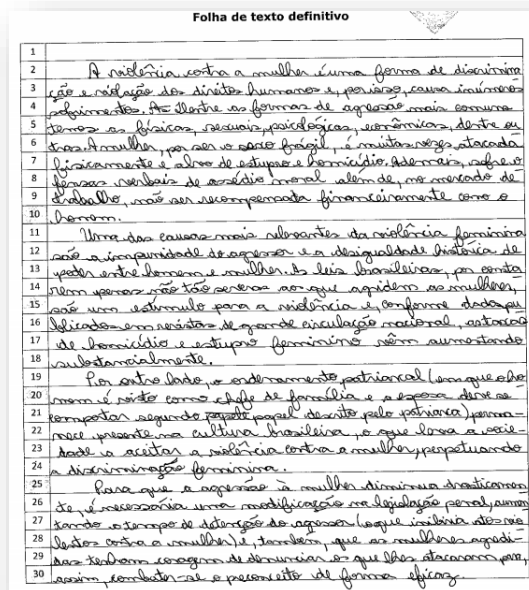 Folha de texto definitivo
1
2 A violência contra a mulher é uma forma de discrimina
3 ção e violação dos direitos humanos e, por isso, causa inúmeros
4 sofrimentos. Dentre as formas de agressão mais comuns
5 temos as físicas, sexuais, psicológicas, econômicas, dentre ou
6 tras. A mulher, por ser o sexo frágil, é muitas vezes atacada
7 fisicamente e alvo de estupro e homicídio. Ademais, sofre o
8 fensas verbais de assédio moral além de, no mercado de
9 trabalho, não ser recompensada financeiramente como o
10 homem.
11 Uma das causas mais relevantes da violência feminina
12 são a impunidade do agressor e a desigualdade histórica de
13 poder entre homem e mulher. As leis brasileiras, por conta
14 rem penas não tão severas aos que agridem as mulheres,
15 são um estímulo para a violência e, conforme dados pu
16 blicados em revistas de grande circulação nacional, as taxas
17 de homicídio e estupro feminino vêm aumentando
18 substancialmente.
19 Por outro lado, o ordenamento patriarcal (em que o ho
20 mem é visto como chefe de família e a esposa deve se
21 comportar segundo papel descrito pelo patriarca) perma
22 nece presente na cultura brasileira, o que leva a socie-
23 dade a aceitar a violência contra a mulher, perpetuando
24 a discriminação feminina.
25 Para que a agressão à mulher diminua drasticamen
26 te, é necessária uma modificação na legislação penal, aumen
27 tando o tempo de detenção do agressor (o que inibiria atos vio
28 lentos contra a mulher) e, também, que as mulheres agredi-
29 das tenham coragem de denunciar os que lhes atacaram para,
30 assim, combater-se o preconceito de forma eficaz.